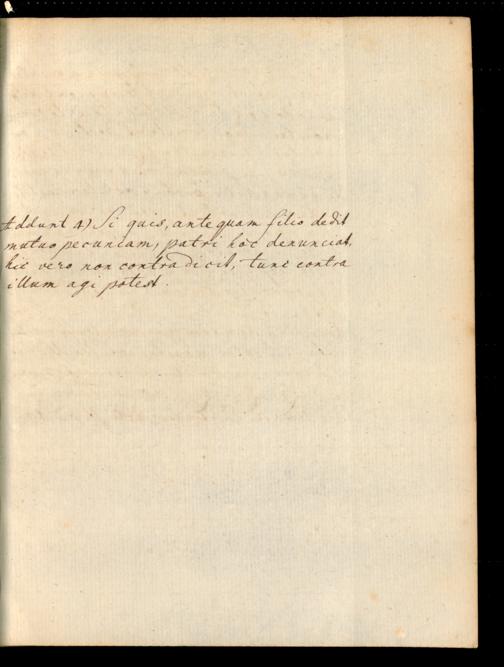 Addunt 4) Si quis, antequam filio dedit
mutuo pecuniam, patri hoc denunciat,
hic vero non contradicit, tunc contra
illum agi potest.